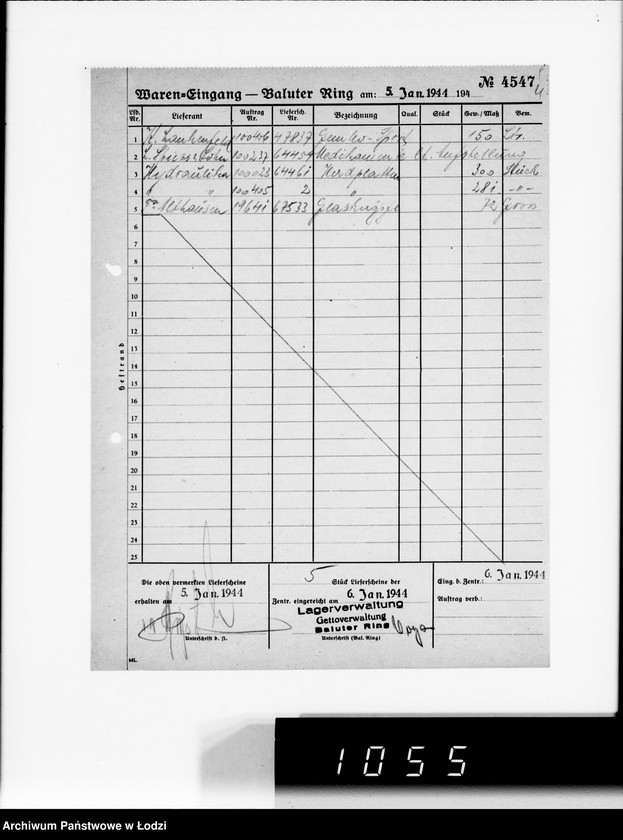 № 4547
Waren-Eingang — Baluter Ring am: 5. Jan. 1944 194
Lfd. Nr. Lieferant Auftrag Nr. Liefersch. Nr. Bezeichnung Qual. Stück Gew./Maß Bem.
1 47837 150
2 100237 lt. Aufstellung
3 Hydraulika 100023 64461 Herdplatten 300 Stück
4 " " 100405 2 " 281 -"-
5 Fa. Althausen 19641 67533
6
7
8
9
10
11
12
13
14
15
16
17
18
19
20
21
22
23
24
25
Heftrand
Die oben vermerkten Lieferscheine
erhalten am 5. Jan. 1944
Unterschrift d. fl.
5 Stück Lieferscheine der
Zentr. eingereicht am 6. Jan. 1944
Lagerverwaltung
Gettoverwaltung
Baluter Ring
Unterschrift (Bal. Ring)
Eing. b. Zentr.: 6. Jan. 1944
Auftrag verb.:
ML.
1055
Archiwum Państwowe w Łodzi